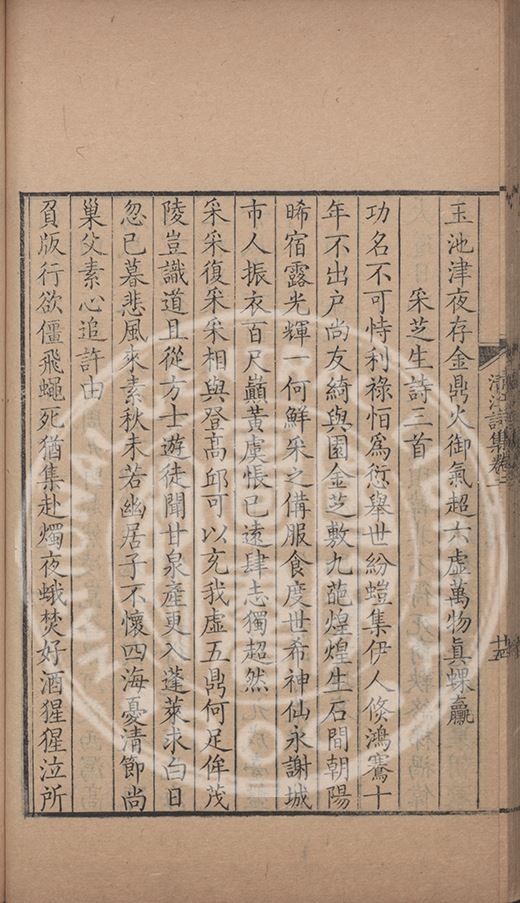 玉池津夜存金鼎火御氣超六虛萬物真螺蠃
采芝生詩三首
功名不可恃利祿怕為愆舉世紛螘集伊人倏鴻騫十
年不出戶尚友綺與園金芝敷九葩煌煌生石間朝陽
晞宿露光輝一何鮮采之備服食度世希神仙永謝城
市人振衣百尺巔黃虞悵已遠肆志獨超然
采采復采采相與登高邱可以充我虛五鼎何足侔茂
陵豈識道且從方士遊徒聞甘泉產更入蓬萊求白日
忽已暮悲風來素秋未若幽居子不懷四海憂清節尚
巢父素心追許由
負版行欲僵飛蠅死猶集赴燭夜蛾焚好酒猩猩泣所
清江詩集卷二
十五